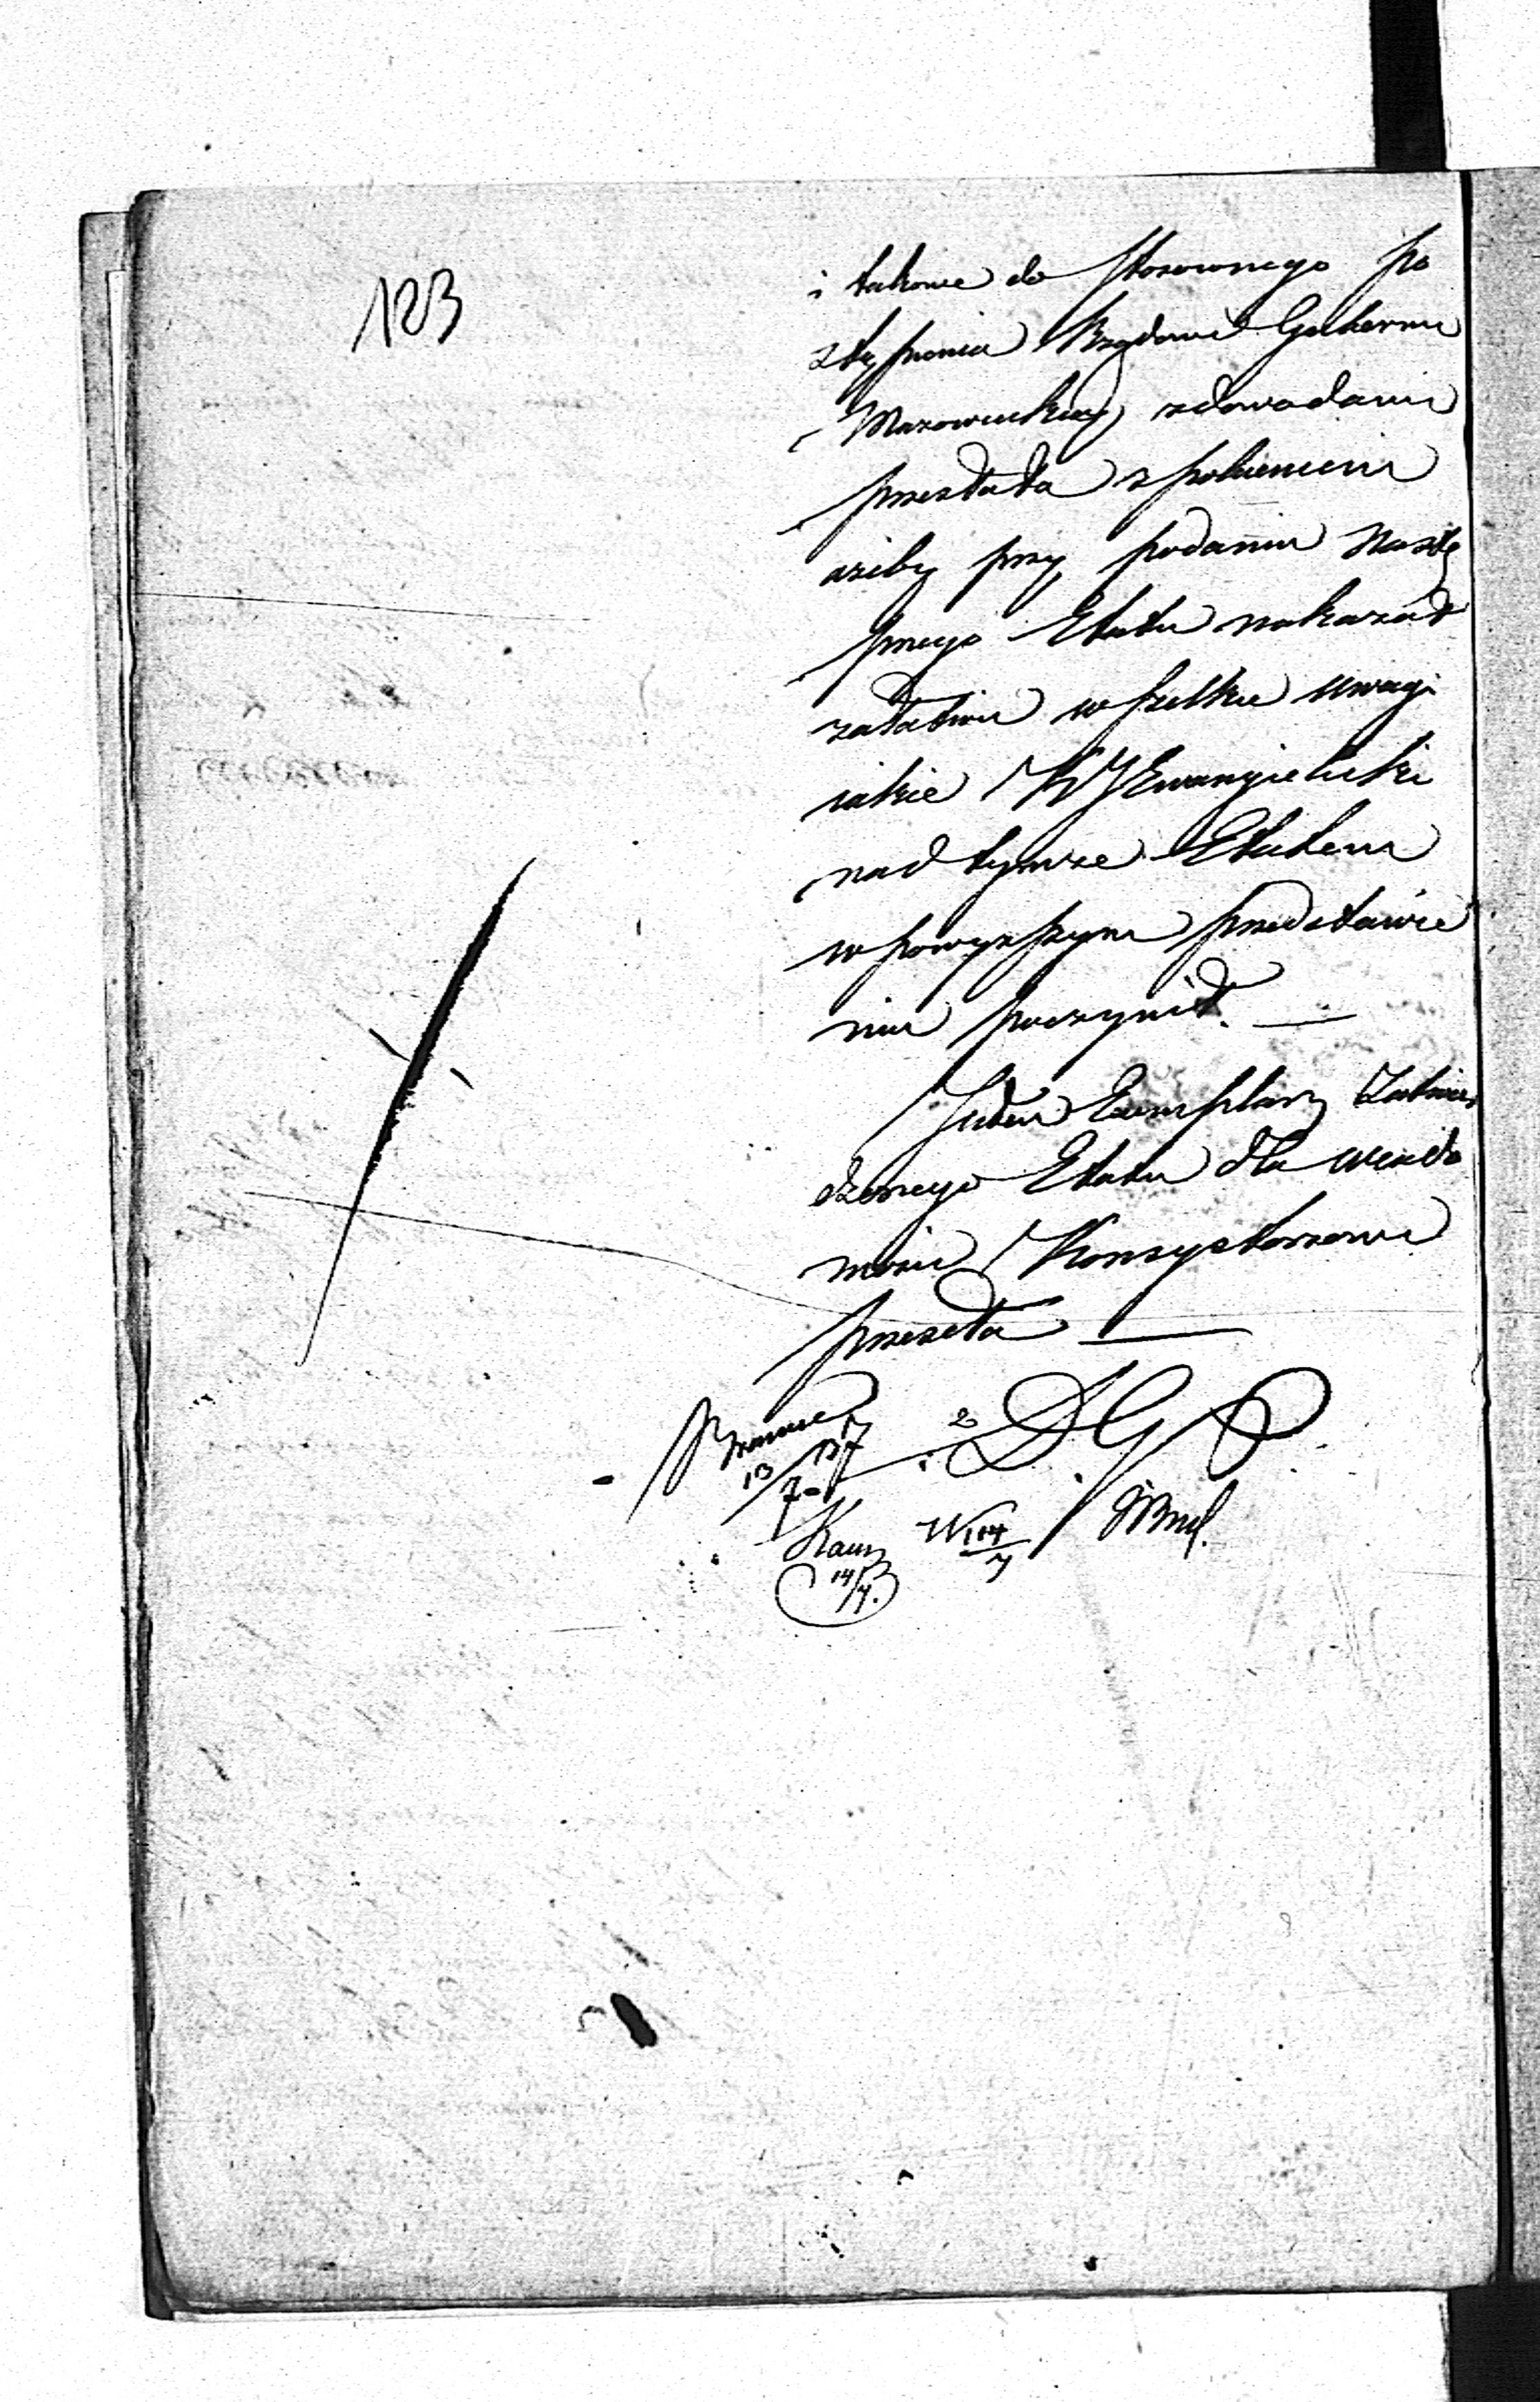 123
i takowe do stosownego po
stąpienia Rządowi Gubernii
Mazowieckiej z dowodami
przesłała z poleceniem
ażeby przy podaniu nastę
pnego Etatu nakazał
załatwić wszelkie uwagi
iakie K J Ewangielicki
nad tymże Etatem
w powyższym przedstawie
niu poczynił. —
Jeden Exemplarz Zatwier
dzonego Etatu dla wiado
mości Konsystorzowi
przesyła —
13/7
2 D G
14/7
14/7.